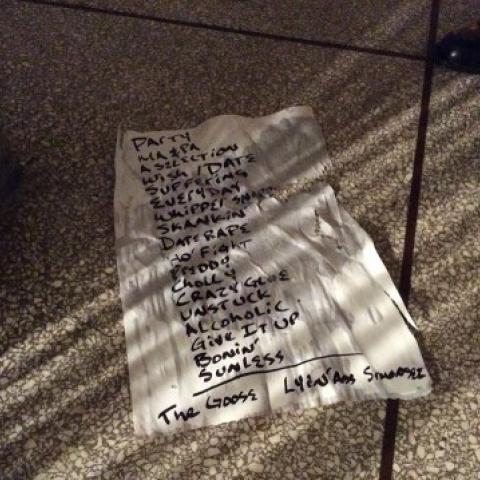 PARTY
MA & PA
A SELECTION
WISH / DATE
SUFFERING
EVERYDAY
WHIPPER SNAP
SKANKIN'
DATE RAPE
NO FIGHT
FREDDY
CHOLLY
CRAZY GLUE
UNSTUCK
ALCOHOLIC
GIVE IT UP
BONIN'
SUNLESS
THE GOOSE LYIN' ASS